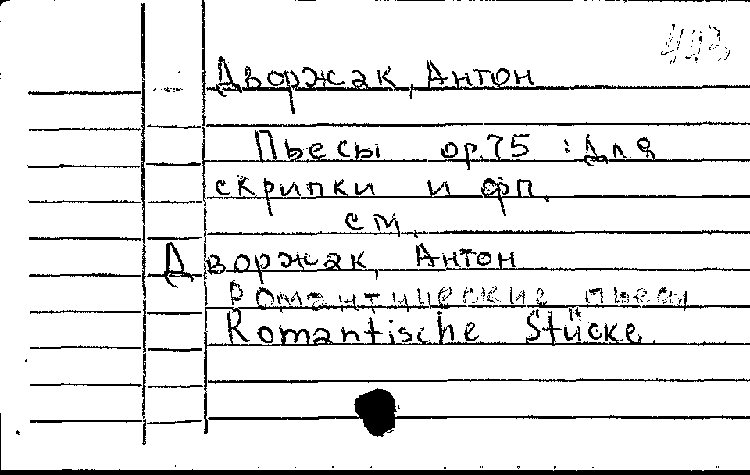 Дворжак, Антон
Пьесы ор.75 : для
скрипки и фп.
см.
Дворжак, Антон
Романтические пьесы
Romantische Stücke